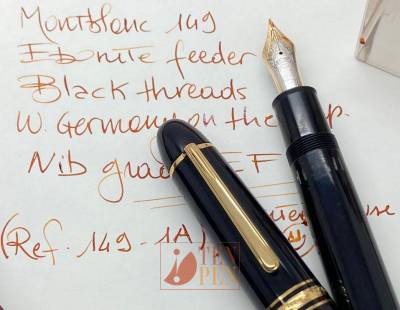 Montblanc 149
Ebonite feeder
Black threads
W. Germany on the
Nib EF
(Ref. 149-1A)
TEN
PEN